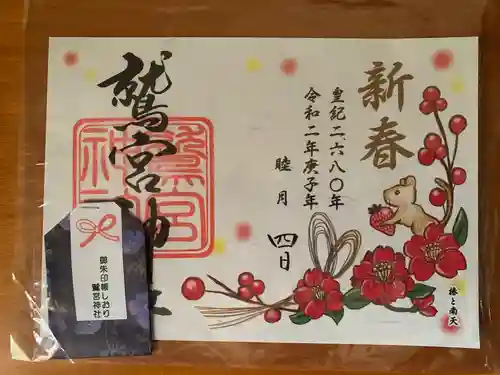 新春
皇紀二六八〇年
令和二年庚子年
睦月
四日
鷲宮神社
鷲宮
神社
椿と南天
御朱印帳しおり
鷲宮神社